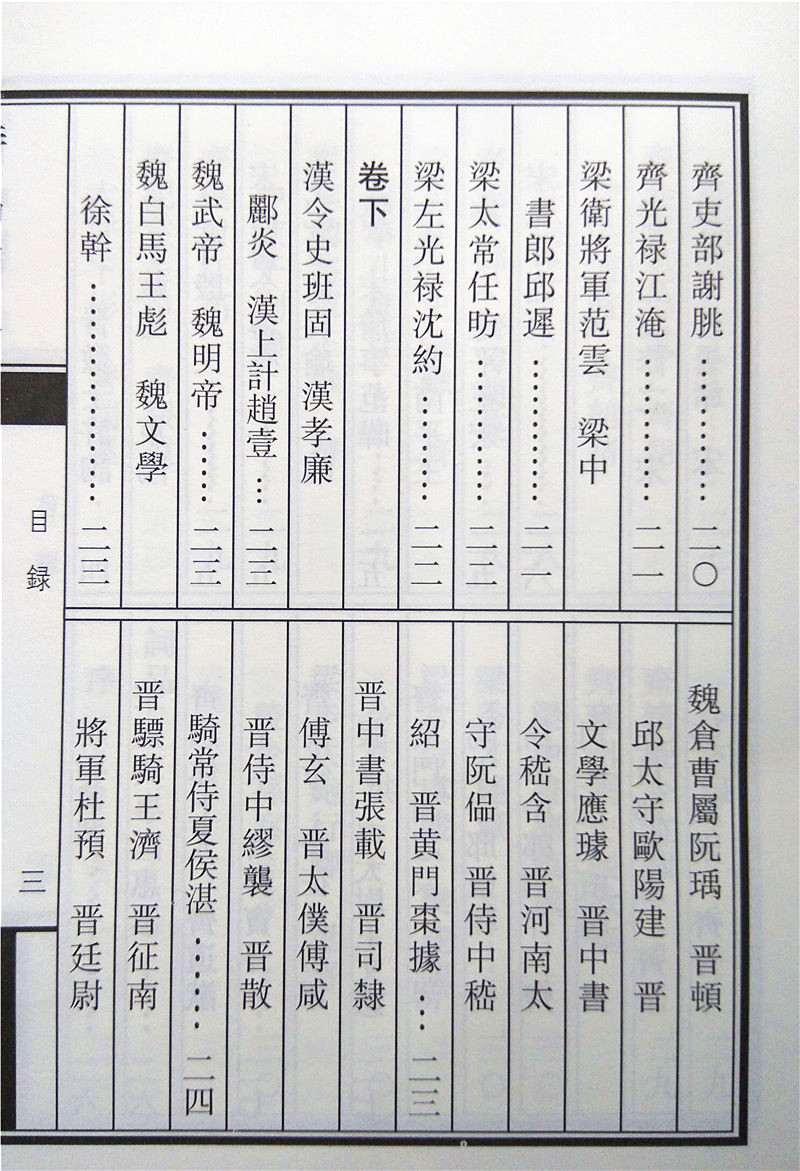 齊吏部謝朓…………二〇
齊光禄江淹…………二一
梁衛將軍范雲　梁中
書郎邱遲…………二二
梁太常任昉…………二二
梁左光禄沈約…………二二
卷下
漢令史班固　漢孝廉
酈炎　漢上計趙壹…二三
魏武帝　魏明帝……二三
魏白馬王彪　魏文學
徐幹…………………二三
魏倉曹屬阮瑀　晋頓
邱太守歐陽建　晋
文學應璩　晋中書
令嵇含　晋河南太
守阮偘　晋侍中嵇
紹　晋黄門棗據…二三
晋中書張載　晋司隸
傅玄　晋太僕傅咸
晋侍中繆襲　晋散
騎常侍夏侯湛………二四
晋驃騎王濟　晋征南
將軍杜預　晋廷尉
目録
三